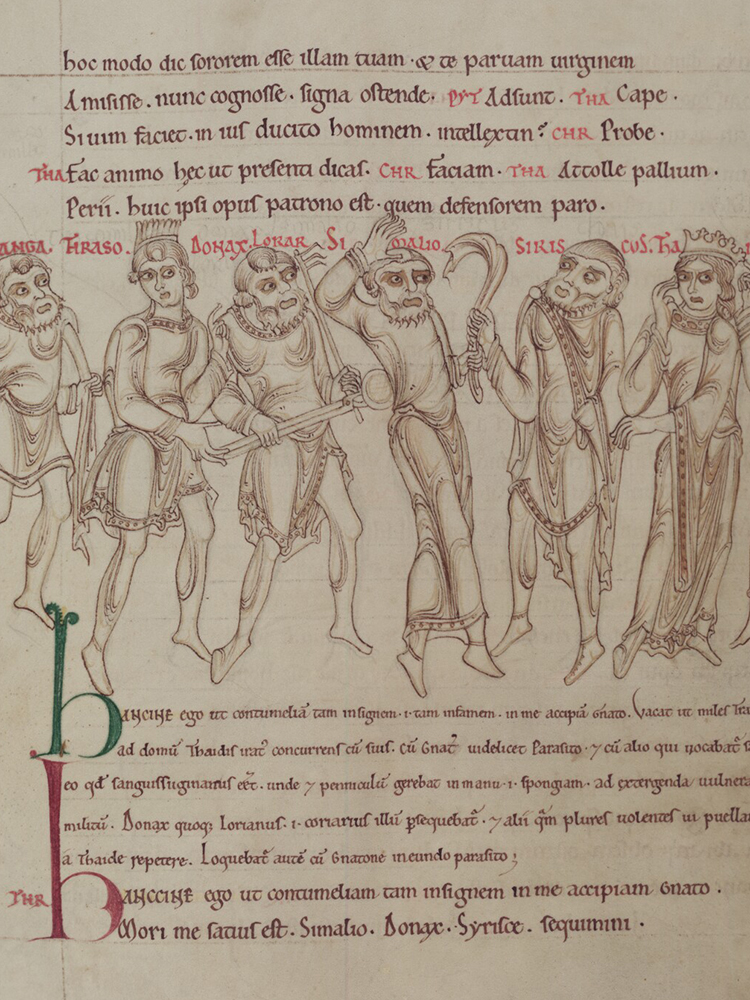 hoc modo dic sororem esse illam tuam · & te paruam uirginem
Amisisse. nunc cognosse. signa ostende. PYT Adsunt. THA Cape.
Si uim faciet. in ius ducito hominem. intellextin? CHR Probe.
THA Fac animo hęc ut presenti dicas. CHR Faciam. THA Attolle pallium.
Perii. huic ipsi opus patrono est. quem defensorem paro.
ANGA. TTRASO. DONAX. LORAR SI MALIO SIRIS CUS. THA
hANCINE ego ut contumeliā tam insignem ·i· tam infamem. in me accipiā Gnato. Vacat ut miles Tra
ad domū Thaidis irat᷒ concurrens cū suis. Cū Gnat᷒ uidelicet Parasito. ⁊ cū alio qui uocabat᷒ s
eo qđ sanguissuginarius eēt. unde ⁊ peniculū gerebat in manu ·i· spongiam. ad extergenda uulnera
militū. Donax quoq; Lorianus ·i· coriarius illū ꝑsequebat᷒. ⁊ alii q̄m plures uolentes ui puellam
a Thaide repetere. Loquebat᷒ autē cū Gnatone in eundo parasito;
THR hANCCINE ego ut contumeliam tam insignem in me accipiam Gnato.
Mori me satius est. Simalio. Donax. Syrisce. sequimini.